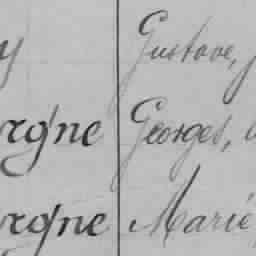 y Gustave,
rgne Georges,
rgne Marie